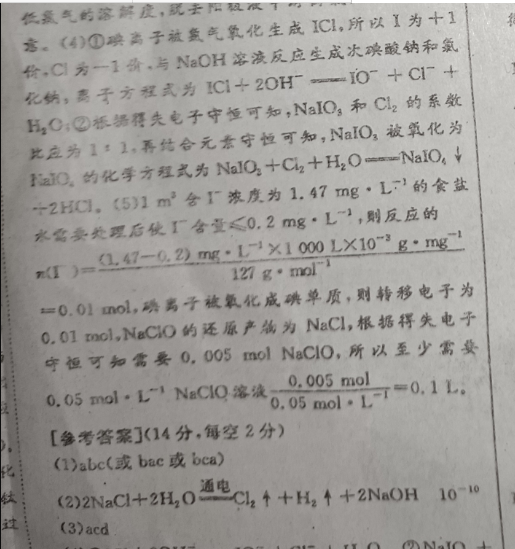 低氯气的溶解度,
意。(4)①碘离子被氯气氧化生成 ICl,所以 I 为+1
价,Cl 为-1 价,与 NaOH 溶液反应生成次碘酸钠和氯
化钠,离子方程式为 ICl+2OH⁻══IO⁻+Cl⁻+
H₂O;②根据得失电子守恒可知,NaIO₃ 和 Cl₂ 的系数
比应为 1:1,再结合元素守恒可知,NaIO₃ 被氧化为
NaIO₄ 的化学方程式为 NaIO₃+Cl₂+H₂O══NaIO₄↓
+2HCl。(5)1 m³ 含 I⁻ 浓度为 1.47 mg·L⁻¹ 的食盐
水需要处理后使 I⁻ 含量≤0.2 mg·L⁻¹,则反应的
n(I⁻)=(1.47-0.2) mg·L⁻¹×1 000 L×10⁻³ g·mg⁻¹
127 g·mol⁻¹
=0.01 mol,碘离子被氧化成碘单质,则转移电子为
0.01 mol,NaClO 的还原产物为 NaCl,根据得失电子
守恒可知需要 0.005 mol NaClO,所以至少需要
0.05 mol·L⁻¹ NaClO 溶液 0.005 mol
0.05 mol·L⁻¹ =0.1 L。
[参考答案](14 分,每空 2 分)
(1)abc(或 bac 或 bca)
(2)2NaCl+2H₂O 通电══Cl₂↑+H₂↑+2NaOH 10⁻¹⁰
(3)acd